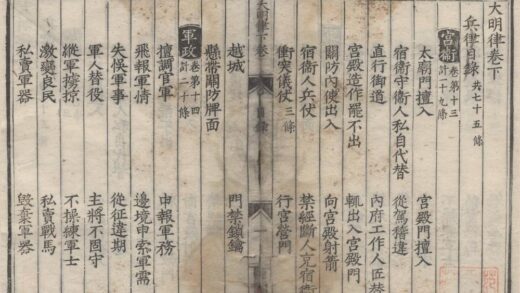 大明律卷下
兵律目錄 共七十五條
宮衛 卷第十三 計一十九條
太廟門擅入 宮殿門擅入
宿衛守衛人私自代替 從駕稽違
直行御道 內府工作人匠替
宮殿造作罷不出 輒出入宮殿門
關防內使出入 向宮殿射箭
宿衛人兵仗 禁經斷人充宿衛
衝突儀仗 三條 行宮營門
大明律下卷 目錄 一
越城 門禁鎖鑰
懸帶關防牌面
軍政 卷第十四 計二十條
擅調官軍 申報軍務
飛報軍情 邊境申索軍需
失悞軍事 從征違期
軍人替役 主將不固守
縱軍擄掠 不操練軍士
激變良民 私賣戰馬
私賣軍器 毀棄軍器